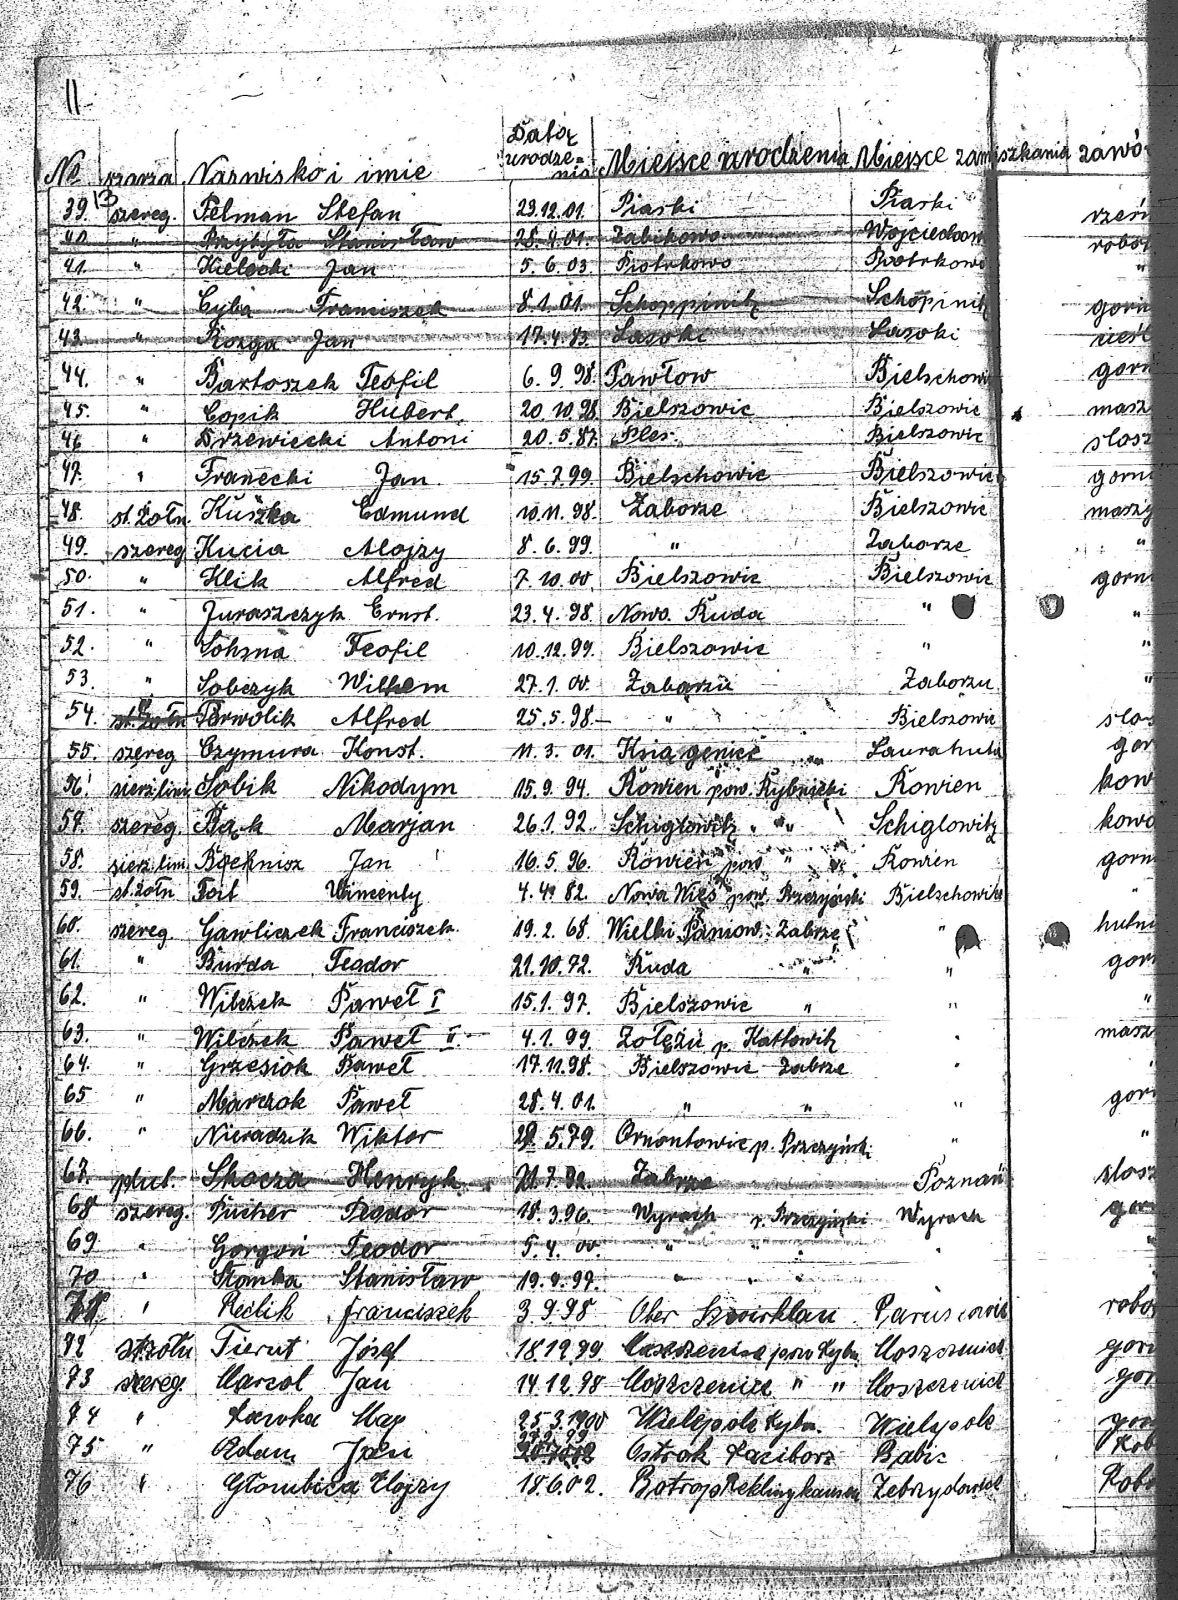 11
№ szarża Nazwisko i imię Data urodzenia Miejsce urodzenia Miejsce zamieszkania zawó
39. 13 szereg. Felman Stefan 23.12.01. Piaski Piaski
40. " Przybyła Stanisław 28.4.01. Żabikowo robot
41. " Kielecki Jan 5.6.03. Piotrkowo Piotrkowo "
42. " Cyba Franciszek 8.1.01. Schoppinitz Schopinitz gorn
43. " Rozga Jan 17.4.83. Lasoki Lasoki
44. " Bartoszek Teofil 6.9.98. Pawłow Bielschow gorn
45. " Copik Hubert 20.10.98. Bielszowic Bielszowic masz
46. " Drzewiecki Antoni 20.5.87. Ples Bielszowic slosz
47. " Franecki Jan 15.7.99. Bielschowic Bielszowic gorni
48. st. żołn. Kuszka Edmund 10.11.98. Zaborze Bielszowic maszy
49. szereg Kucia Alojzy 8.6.99. " Zaborze "
50. " Klik Alfred 7.10.00. Bielszowic Bielszowic gorni
51. " Juraszczyk Ernst. 23.4.98. Nowo. Ruda " "
52. " Sohna Teofil 10.12.99. Bielszowic " "
53. " Sobczyk Wilhem 27.1.00. Zaborzu Zaborzu "
54. st. żołn Alfred 25.5.98. " Bielszowic slos
55. szereg Czymura Konst. 11.3.01. Ksią genice Laurahuta gor
56. sierż. lini. Sobik Nikodym 15.9.94. Rowien pow. Rybnicki Rowien kow
57. szereg. Bąk Marjan 26.1.92. Schiglowitz " " Schiglowitz kowa
58. sierż. lini. Jan 16.5.96. Rowien pow " Rowien gorn
59. st. żołn Foit Wincenty 4.4.82. Nowa Wieś pow. Bielschowitz "
60. szereg. Gawliczek Franciszek 19.2.68. Wielki Paniow. Zabrze " hutni
61. " Burda Teodor 21.10.72. Ruda " " gorn
62. " Wilczek Paweł I 15.1.97. Bielszowic " " "
63. " Wilczek Paweł II 4.1.99. Zołężu p. Kattowitz " masz
64. " Grzesiok Paweł 17.11.98. Bielszowic Zabrze "
65 " Marczok Paweł 28.4.01. " " " gorn
66. " Nieradzik Wiktor 29.5.79. Ornontowic p. " "
67. plut. Skocza Henryk 21.7.92. Zabrze Poznań slosz
68 szereg. Pucher Teodor 18.3.96. Wyrach p. Wyrach gorn
69 " Gorgoń Teodor 5.4.00 " " " "
70 " Stanisław 19.4.97. " " " "
71 " Redlik Franciszek 3.9.98 Ober robo
72 st. żołn Tierut Józef 18.12.99. pow Rybn Moszczenica gorn
73 szereg. Marcol Jan 14.12.98 Moszczenica " " Moszczenica gor
74 " Ławka Max 25.3.1900 Wielepole Rybn. Wielepole gorn
75 " Adam Jan Ostrok Raciborz Babic Rob
76 " Głombica Alojzy 18.6.02. Botrop Reklinghausen Robo